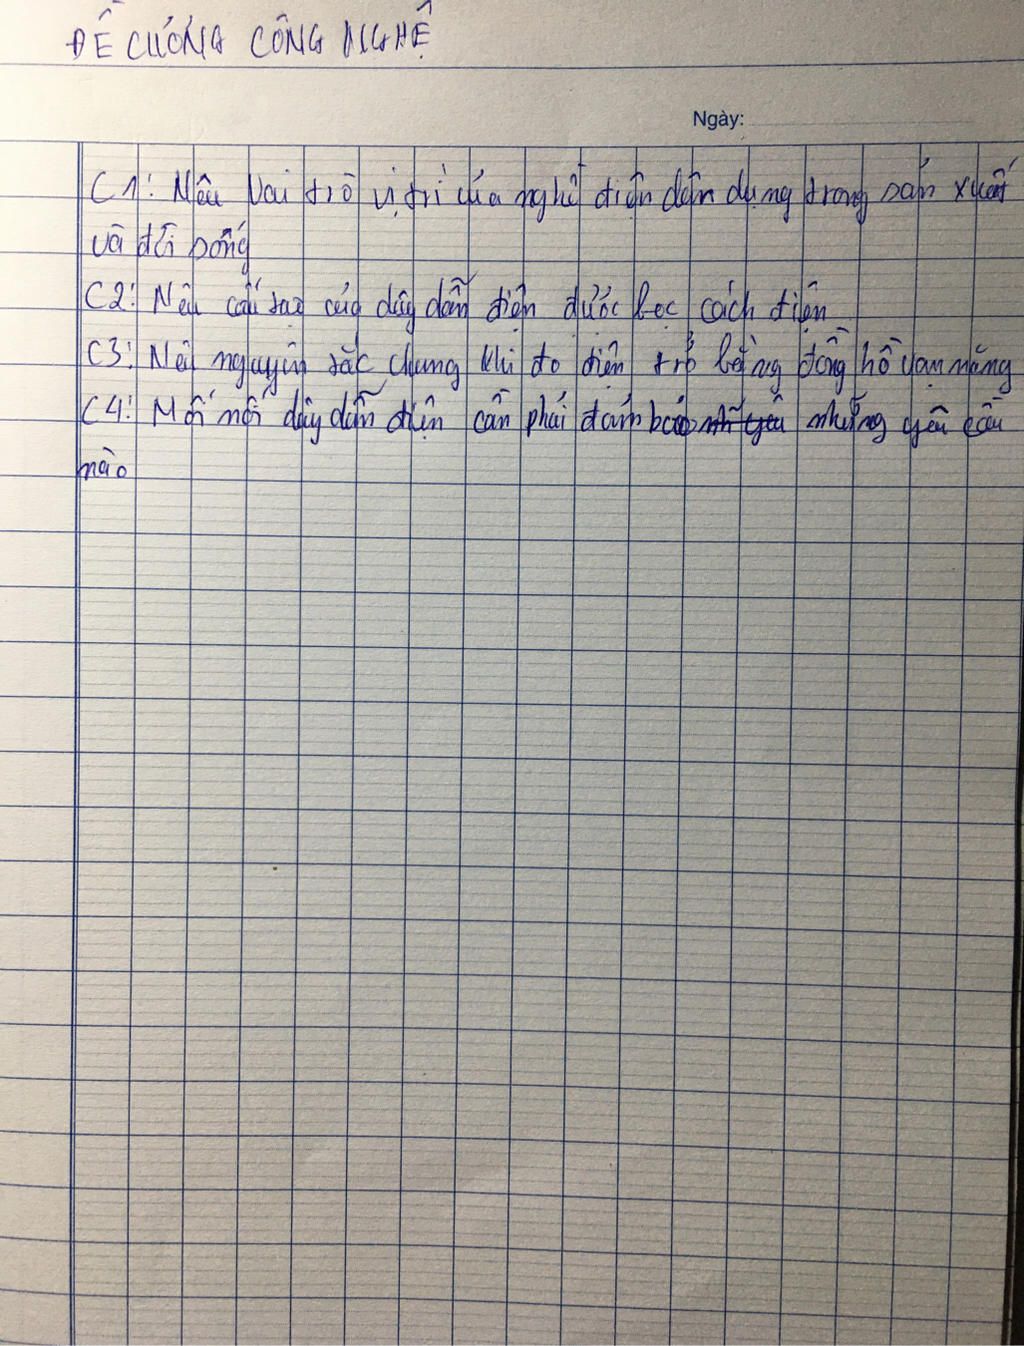 ĐỀ CƯƠNG CÔNG NGHỆ
Ngày:
C1: Nêu vai trò vị trí của nghề điện dân dụng trong sản xuất
và đời sống
C2: Nêu cấu tạo của dây dẫn điện được bọc cách điện
C3: Nêu nguyên tắc chung khi đo điện trở bằng đồng hồ vạn năng
C4: Mối nối dây dẫn điện cần phải đảm bảo những yêu cầu
nào